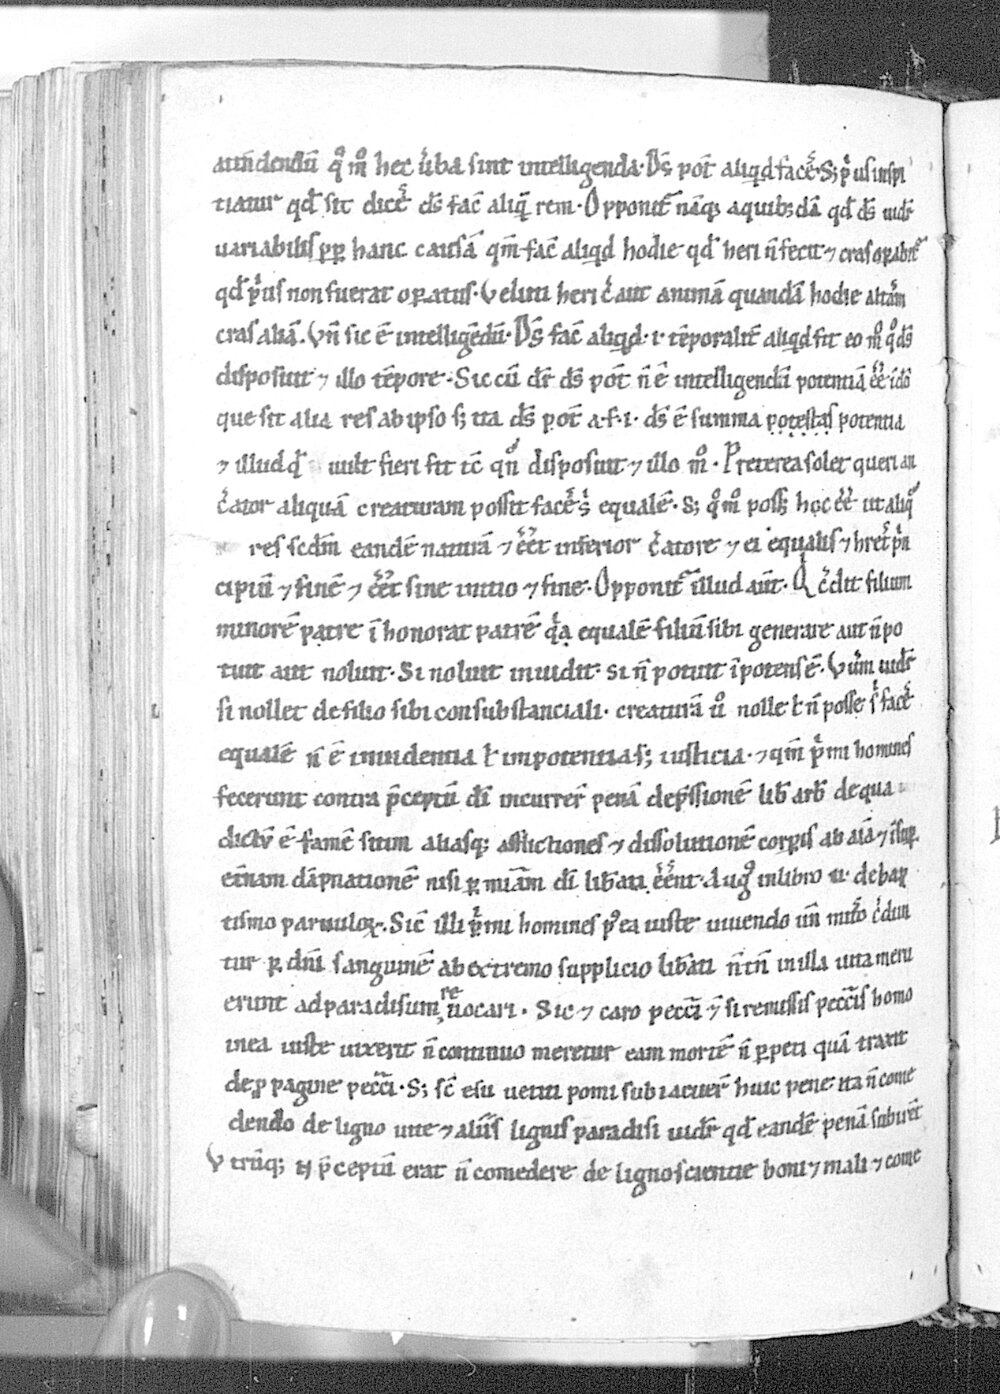 aūdendū qͦ mͦ hec ũba sint intelligenda. Ds̄ pot̄ aliqd facẽ. S; pͥus inspi
tiatur qd̄ sit dicẽ ds̄ fac̄ aliq̄ rem. Opponit̃ nāq; a quib;dā qd̄ ds̄ uidet̃
uariabilis ꝑꝑ hanc causā qm̄ fac̄ aliqd hodie qd̄ heri n̄ fecit ⁊ cras oꝑabit̃
qd̄ pͥus non fuerat oꝑatus. Veluti heri c̃aut animā quandā hodie altãm
cras aliā. Vn̄ sic ē intelligēdū. Ds̄ fac̄ aliqd. i. tēporalit̃ aliqd fit eo mͦ qͦ ds̄
disposuit ⁊ illo tēpore. Sic cū dr̄ ds̄ pot̄ n̄ ē intelligendū potentiā eē̃ i dō
que sit alia res ab ipso s; ita ds̄ pot̄ a. f. i. ds̄ ē summa potestas potentia
⁊ illud q̄ uult fieri fit tc̄ qn̄ disposuit ⁊ illo mͦ. Preterea solet queri an
c̃ator aliquā creaturam possit facẽ s; equalē. S; qͦmͦ poss; hoc eē̃ ut aliq̃
res scd̄m eandē naturā ⁊ eēt̃ inferior c̃atore ⁊ ei equalis ⁊ hr̄et pͥn
cipiū ⁊ finē ⁊ eēt̃ sine initio ⁊ fine. Opponit̃ illud aūt. Q c̃dit filium
minorē patre ī honorat patrē qͥa equalē filiū sibi generare aut n̄ po
tuit aut noluit. Si noluit inuidit. si n̄ potuit īpotens ē. Vũm uidet̃
si nollet de filio sibi consubstanciali. creaturā uͦ nolle ł n̄ posse sͥ facẽ
equalē n̄ ē inuidentia ł impotentia s; iusticia. ⁊ qm̄ pͥmi homines
fecerunt contra p̄ceptū dī incurrer̄ penā dep̄ssionē lib̄ arb̄ de qua
dictū ē famē sitim aliasq; afflictiones ⁊ dissolutionē corꝑis ab aīa ⁊ īsuꝑ
et̃nam dāpnationē nisi ꝑ miām dī lib̄ati eēnt̃. Augͦ in libro ii. de bap
tismo paruuloꝝ. Sic̄ illi pͥmi homines pͦea iuste uiuendo un̄ mͥto c̃dun
tur ꝑ dn̄i sanguinē ab extremo supplicio lib̄ati n̄ tn̄ in illa uita meru
erunt ad paradisum reuocari. Sic ⁊ caro pecc̄i ⁊̄ si remissis pecc̄is homo
in ea iuste uixerit n̄ continuo meretur eam mortē n̄ ꝑpeti quā traxit
de ꝓpagine pecc̄i. S; sc̄ esu uetiti pomi subiacuer̄ huic pene ita n̄ come
dendo de ligno uite ⁊ aliis lignis paradisi uidet̃ qd̄ eandē penā subirēt
Vtrūq; n̄ p̄ceptū erat n̄ comedere de ligno scientie boni ⁊ mali ⁊ come